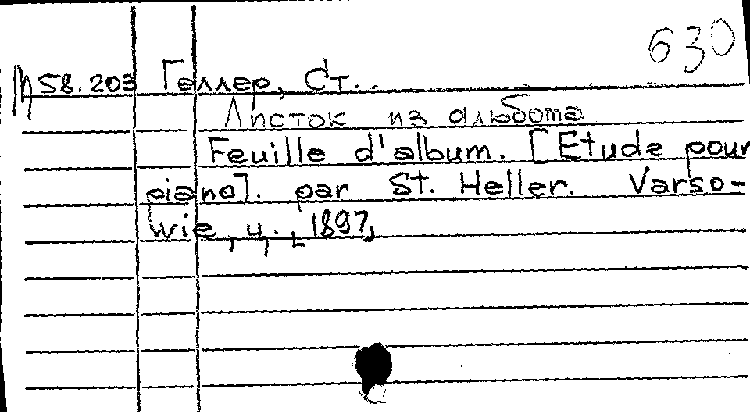 630
М 58.203 Геллер, Ст..
Листок из альбома
Feuille d'album. [Etude pour
piano]. par St. Heller. Varso-
wie, ц., 1897,